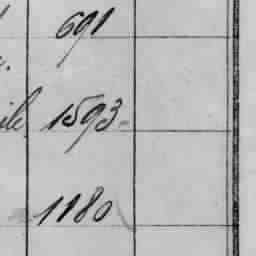 691
ile 1593-
1180